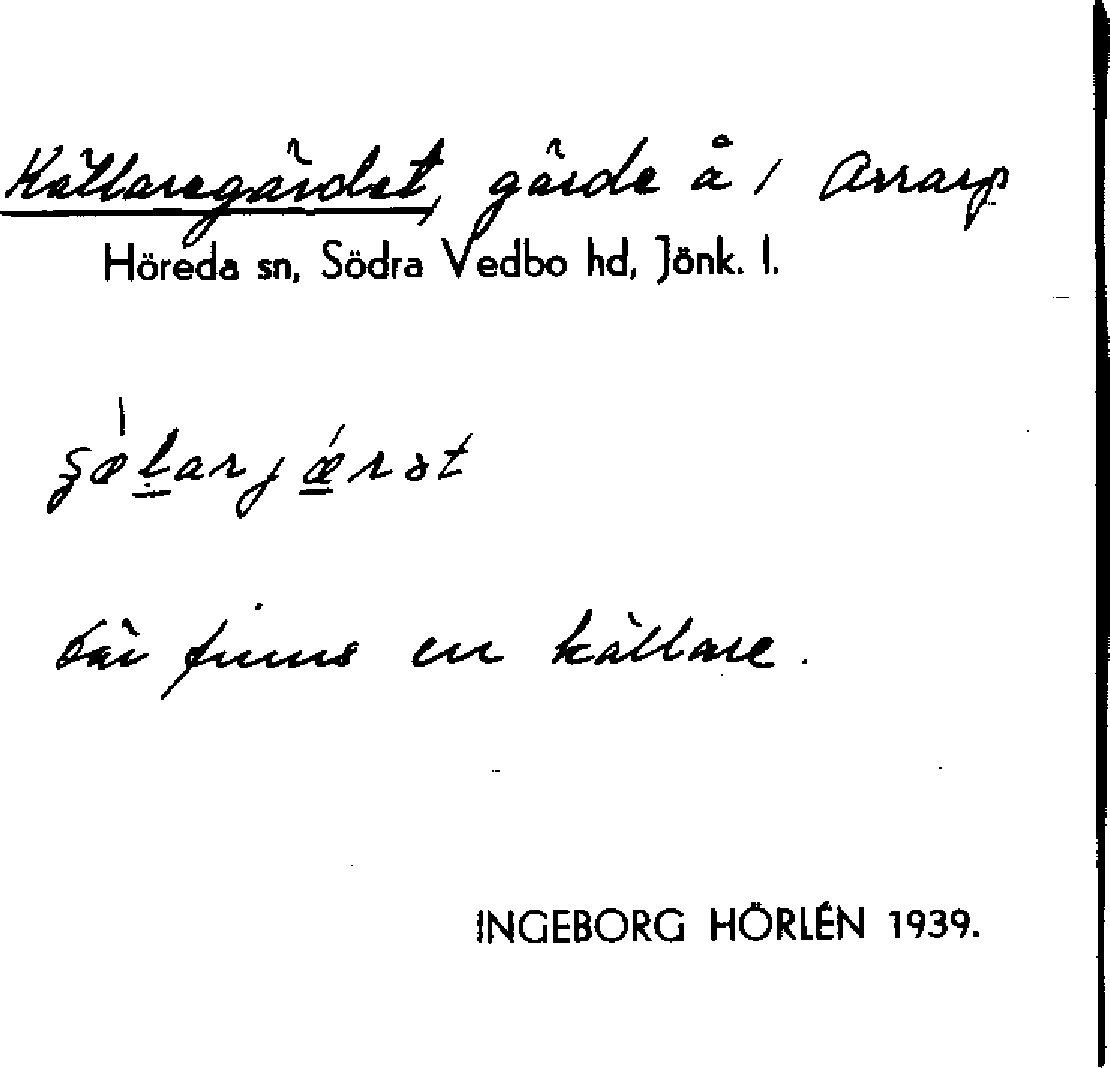 Källaregärdet, gärde å 1 Arrarp
Höreda sn, Södra Vedbo hd, Jönk. l.
Där finns en källare.
INGEBORG HÖRLÉN 1939.